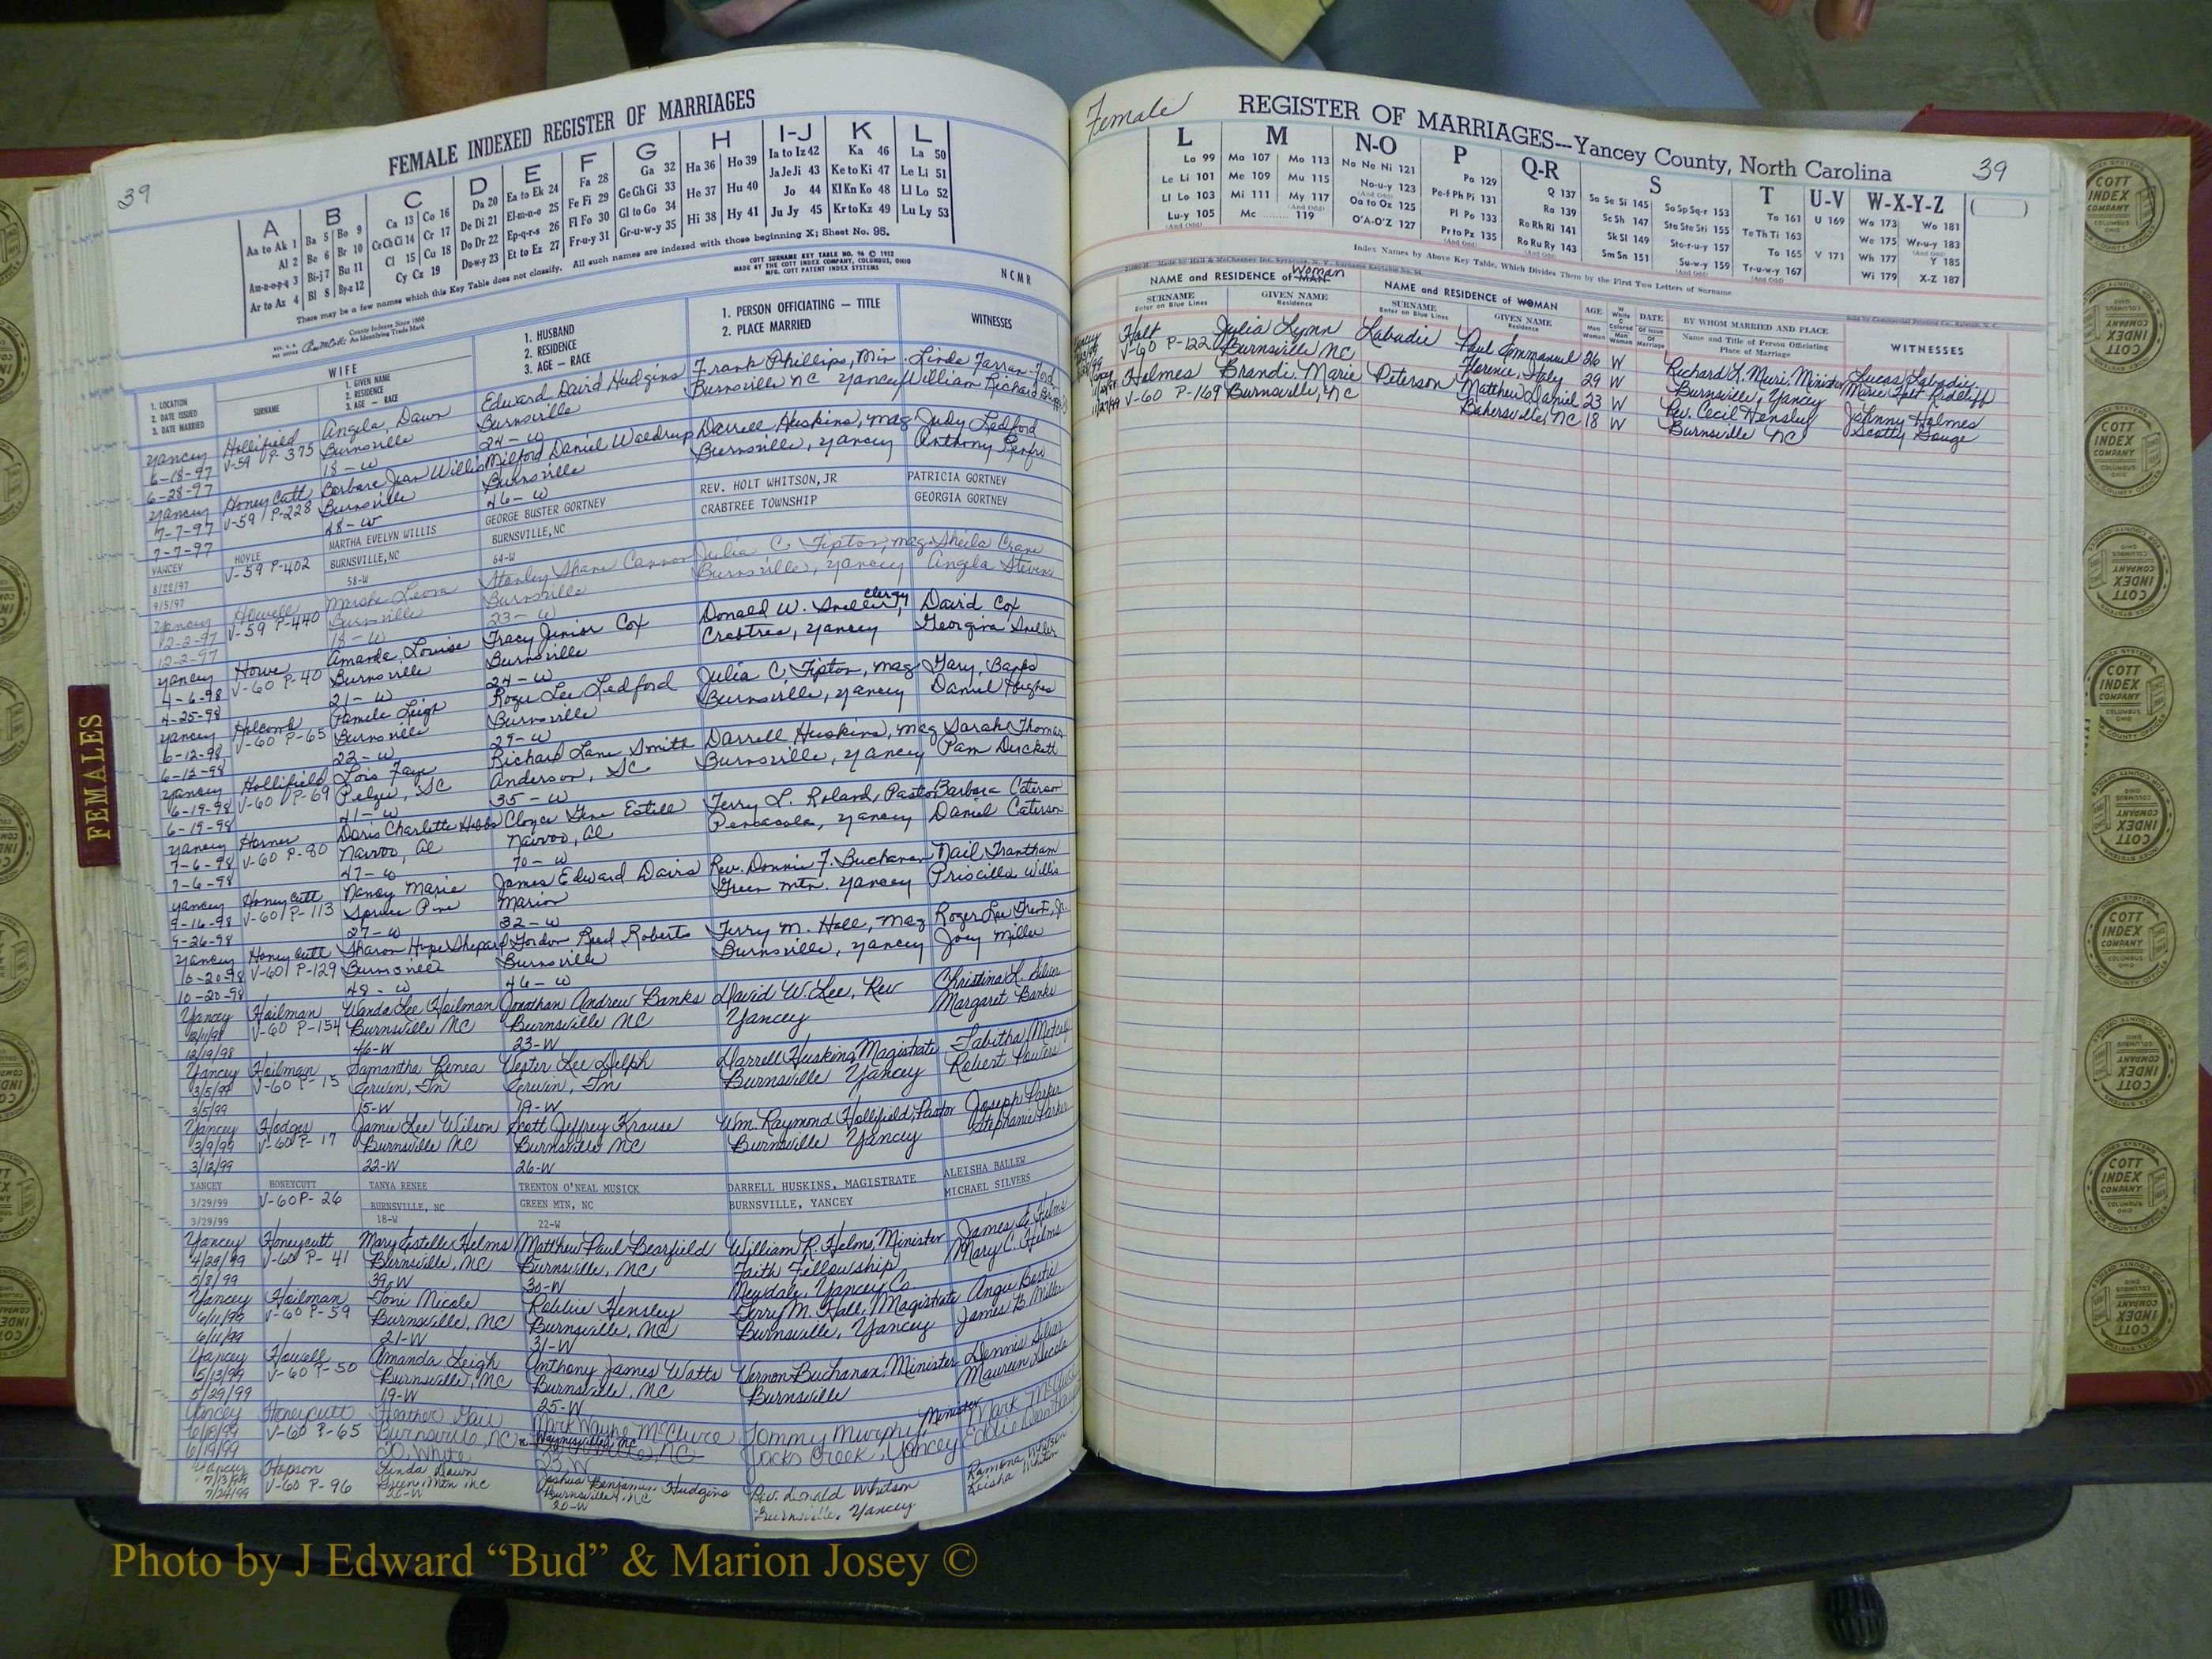 39
FEMALE INDEXED REGISTER OF MARRIAGES
A B C D E F G H I-J K L
Aa to Ak 1 Ba 5 Bo 9 Ca 13 Co 16 Da 20 Ea to Ek 24 Fa 28 Ga 32 Ha 36 Ho 39 Ia to Iz 42 Ka 46 La 50
Al 2 Be 6 Br 10 Ce Ch Ci 14 Cr 17 De Di 21 El-m-n-o 25 Fe Fi 29 Ge Gh Gi 33 He 37 Hu 40 Ja Je Ji 43 Ke to Ki 47 Le Li 51
Am-n-o-p-q 3 Bi-j 7 Bu 11 Cl 15 Cu 18 Do Dr 22 Ep-q-r-s 26 Fl Fo 30 Gl to Go 34 Hi 38 Hy 41 Jo 44 Kl Kn Ko 48 Ll Lo 52
Ar to Az 4 Bl 8 By-z 12 Cy Cz 19 Du-w-y 23 Et to Ez 27 Fr-u-y 31 Gr-u-w-y 35 Ju Jy 45 Kr to Kz 49 Lu Ly 53
There may be a few names which this Key Table does not classify. All such names are indexed with those beginning X; Sheet No. 96.
County Indexes Since 1888
An Identifying Trade Mark
COTT SURNAME KEY TABLE NO. 96 © 1952
MADE BY THE COTT INDEX COMPANY, COLUMBUS, OHIO
MFG. COTT PATENT INDEX SYSTEMS
NCMR
1. LOCATION
2. DATE ISSUED
3. DATE MARRIED
WIFE
SURNAME
1. GIVEN NAME
2. RESIDENCE
3. AGE — RACE
1. HUSBAND
2. RESIDENCE
3. AGE — RACE
1. PERSON OFFICIATING — TITLE
2. PLACE MARRIED
WITNESSES
Yancey Hollifield Angela Dawn Edward David Hudgins Frank Phillips, Min. Linda Farran
6-18-97 V-59 P-375 Burnsville Burnsville Burnsville NC Yancey William Richard
6-28-97 18-W 24-W
Yancey Honeycutt Barbara Jean Willis Milford Daniel Waldrup Darrell Huskins, Mag Judy Ledford
7-7-97 V-59 P-228 Burnsville Burnsville Burnsville, Yancey Anthony Renfro
7-7-97 48-W 46-W
YANCEY HOYLE MARTHA EVELYN WILLIS GEORGE BUSTER GORTNEY REV. HOLT WHITSON, JR PATRICIA GORTNEY
8/22/97 V-59 P-402 BURNSVILLE, NC BURNSVILLE, NC CRABTREE TOWNSHIP GEORGIA GORTNEY
9/5/97 58-W 64-W
Yancey Howell Marsha Leona Stanley Shane Cannon Julia C. Tipton, Mag. Sheila Crane
12-2-97 V-59 P-440 Burnsville Burnsville Burnsville, Yancey Angela Stevens
12-2-97 18-W 23-W
Yancey Howe Amanda Louise Tracy Junior Cox Donald W. Sneller, Clergy David Cox
4-6-98 V-60 P-40 Burnsville Burnsville Crabtree, Yancey Georgina Sneller
4-25-98 21-W 24-W
Yancey Holcomb Pamela Leigh Roger Lee Ledford Julia C. Tipton, Mag Gary Banks
6-12-98 V-60 P-65 Burnsville Burnsville Burnsville, Yancey Daniel Hughes
6-12-98 22-W 29-W
Yancey Hollifield Lois Faye Richard Lane Smith Darrell Huskins, Mag Sarah Thomas
6-19-98 V-60 P-69 Pelzer, SC Anderson, SC Burnsville, Yancey Pam Duckett
6-19-98 41-W 35-W
Yancey Horner Doris Charlette Hibbs Cloyce Gene Estill Terry L. Roland, Pastor Barbara Caterson
7-6-98 V-60 P-80 Nauvoo, Al Nauvoo, Al Pensacola, Yancey Daniel Caterson
7-6-98 47-W 70-W
Yancey Honeycutt Nancy Marie James Edward Davis Rev. Donnie F. Buchanan Nail Trantham
9-16-98 V-60 P-113 Spruce Pine Marion Green Mtn. Yancey Priscilla Willis
9-26-98 27-W 32-W
Yancey Honeycutt Sharon Hope Shepard Gordon Reed Roberts Terry M. Hall, Mag Roger Lee Trent, Jr.
10-20-98 V-60 P-129 Burnsville Burnsville Burnsville, Yancey Joey Miller
10-20-98 48-W 46-W
Yancey Hoilman Wanda Lee Hoilman Jonathan Andrew Banks David W. Lee, Rev Christina L. Silver
12/11/98 V-60 P-154 Burnsville NC Burnsville NC Yancey Margaret Banks
12/19/98 46-W 23-W
Yancey Hoilman Samantha Renea Vester Lee Delph Darrell Huskins, Magistrate Tabitha Metcalf
3/5/99 V-60 P-15 Erwin, Tn Erwin, Tn Burnsville Yancey Robert Powers
3/5/99 15-W 19-W
Yancey Hodges Jamie Lee Wilson Scott Jeffrey Krause Wm. Raymond Hollifield, Pastor Joseph Parker
3/9/99 V-60 P-17 Burnsville NC Burnsville NC Burnsville Yancey Stephanie Parker
3/12/99 22-W 26-W
YANCEY HONEYCUTT TANYA RENEE TRENTON O'NEAL MUSICK DARRELL HUSKINS, MAGISTRATE ALEISHA BALLEW
3/29/99 V-60P-26 BURNSVILLE, NC GREEN MTN, NC BURNSVILLE, YANCEY MICHAEL SILVERS
3/29/99 18-W 22-W
Yancey Honeycutt Mary Estelle Helms Matthew Paul Bearfield William R. Helms, Minister James E. Helms
4/29/99 V-60 P-41 Burnsville, NC Burnsville, NC Faith Fellowship Mary C. Helms
5/8/99 39-W 30-W Newdale, Yancey Co.
Yancey Hoilman Toni Nicole Robbie Hensley Terry M. Hall, Magistrate Angie Bostic
6/11/99 V-60 P-59 Burnsville, NC Burnsville, NC Burnsville, Yancey James B. Miller
6/11/99 21-W 31-W
Yancey Howell Amanda Leigh Anthony James Watts Vernon Buchanan, Minister Dennis Silver
5/13/99 V-60 P-50 Burnsville, NC Burnsville, NC Burnsville Maureen
5/29/99 19-W 25-W
Yancey Honeycutt Heather Gail Mark Wayne McClure Tommy Murphy, Minister Mark McClure
6/18/99 V-60 P-65 Burnsville, NC Waynesville, NC Jacks Creek, Yancey Eddie Dean
6/19/99 20, White 23, W
Yancey Hopson Linda Dawn Joshua Benjamin Hudgins Rev. Donald Whitson Ramona Whitson
7/13/99 V-60 P-96 Green Mtn NC Burnsville, NC Burnsville, Yancey Keisha Whitson
7/24/99 20-W 20-W
FEMALES
Female
REGISTER OF MARRIAGES---Yancey County, North Carolina
39
L M N-O P Q-R S T U-V W-X-Y-Z
La 99 Ma 107 Mo 113 Na Ne Ni 121 Pa 129 Q 137 Sa Se Si 145 So Sp Sq-r 153 Ta 161 U 169 Wa 173 Wo 181
Le Li 101 Me 109 Mu 115 No-u-y 123 (And Odd) Pe-f Ph Pi 131 Ra 139 Sc Sh 147 Sta Ste Sti 155 Te Th Ti 163 We 175 Wr-u-y 183 (And Odd)
Ll Lo 103 Mi 111 My 117 (And Odd) Oa to Oz 125 Pl Po 133 Re Rh Ri 141 Sk Sl 149 Sto-r-u-y 157 To 165 V 171 Wh 177 Y 185
Lu-y 105 (And Odd) Mc 119 O'A-O'Z 127 Pr to Pz 135 (And Odd) Ro Ru Ry 143 (And Odd) Sm Sn 151 Su-w-y 159 (And Odd) Tr-u-w-y 167 (And Odd) Wi 179 X-Z 187
Index Names by Above Key Table, Which Divides Them by the First Two Letters of Surname
Made by Hall & McChesney Inc. Syracuse, N. Y., Surname Keytable No.
Sold by Commercial Printing Co., Raleigh, N. C.
NAME and RESIDENCE of MAN Woman
SURNAME
Enter on Blue Lines
GIVEN NAME
Residence
NAME and RESIDENCE of WOMAN
SURNAME
Enter on Blue Lines
GIVEN NAME
Residence
AGE
Man
Woman
W White
C Colored
Man
Woman
DATE
Of Issue
Of Marriage
BY WHOM MARRIED AND PLACE
Name and Title of Person Officiating
Place of Marriage
WITNESSES
Yancey Holt Julia Lynn Labadie Paul Emmanuel 26 W Richard L. Muri, Minister Lucas Labadie
V-60 P-122 Burnsville NC Florence, Italy 29 W Burnsville, Yancey Marie Holt Ridcliff
Yancey Holmes Brandi Marie Peterson Matthew Daniel 23 W Rev. Cecil Hensley Johnny Holmes
11/27/99 V-60 P-169 Burnsville, NC Bakersville, NC 18 W Burnsville NC Scotty Gouge
INDEX SYSTEMS
COTT
INDEX
COMPANY
COLUMBUS
OHIO
FOR COUNTY OFFICES
Photo by J Edward “Bud” & Marion Josey ©